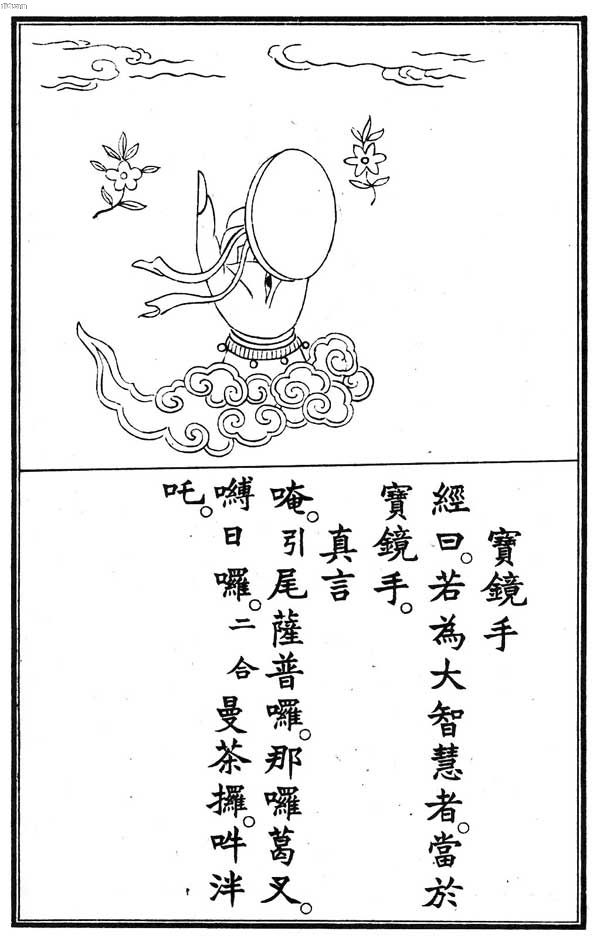 寶鏡手
經曰。若為大智慧者。當於
寶鏡手。
真言
唵。引尾薩普囉。那囉葛叉。
嚩日囉。二合曼茶攞。吽泮
吒。